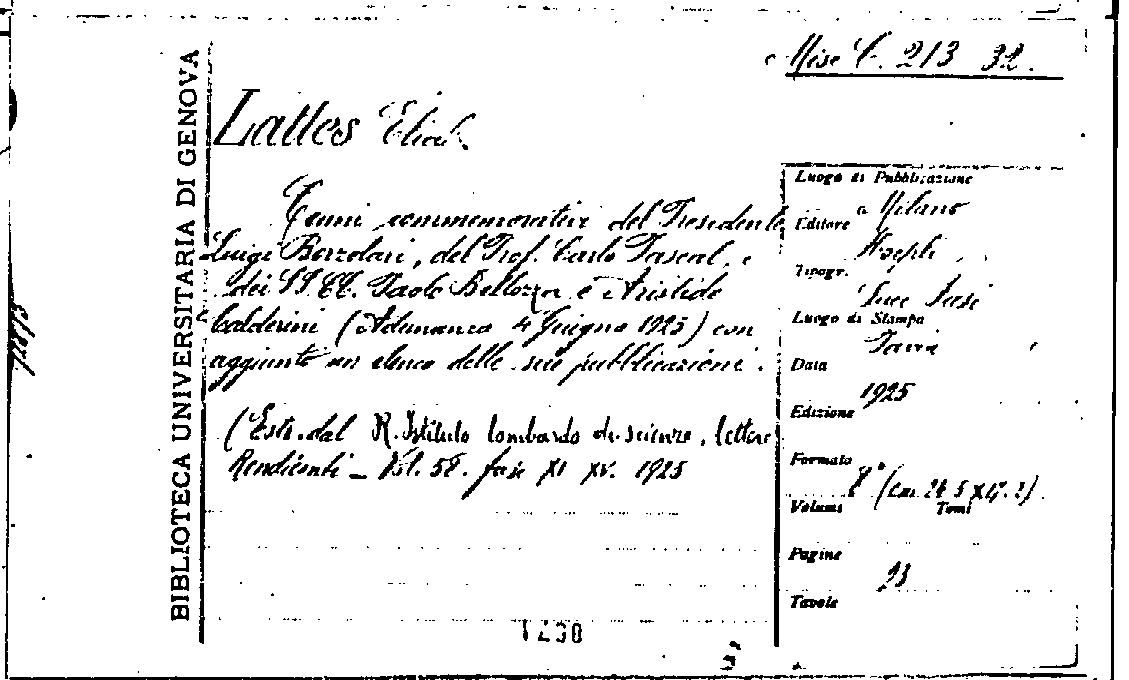 Misc C. 213 32.
BIBLIOTECA UNIVERSITARIA DI GENOVA
Lattes Elia
Cenni commemorativi del Presidente
Luigi Berzolari, del Prof. Carlo Pascal, e
dei SS. CC. Paolo Bellezza e Aristide
Calderini (Adunanza 4 Giugno 1925) con
aggiunto un elenco delle sue pubblicazioni.
(Estr. dal R. Istituto lombardo di scienze, lettere
Rendiconti - Vol. 58. fasc XI XV. 1925
Luogo di Pubblicazione
Milano
Editore
Hoepli
Tipogr.
Succ Fusi
Luogo di Stampa
Pavia
Data
1925
Edizione
Formato
8°
Volumi Tomi
Pagine
23
Tavole